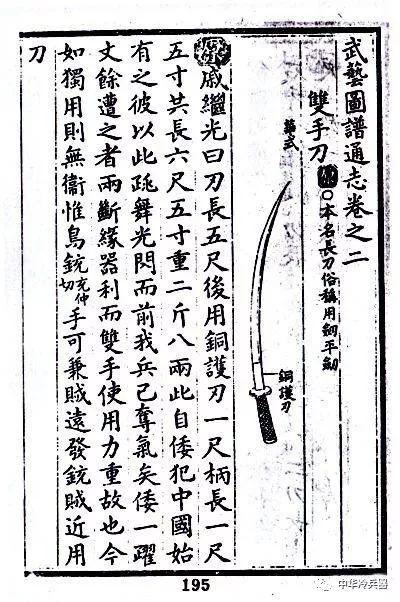 武藝圖譜通志卷之二
雙手刀 ○本名長刀俗稱用劒平劒
華式
銅護刃
戚繼光曰刀長五尺後用銅護刃一尺柄長一尺
五寸共長六尺五寸重二斤八兩此自倭犯中國始
有之彼以此跳舞光閃而前我兵已奪氣矣倭一躍
丈餘遭之者兩斷緣器利而雙手使用力重故也今
如獨用則無衞惟鳥銃充仲切手可兼賊遠發銃賊近用
刀
195
中华冷兵器